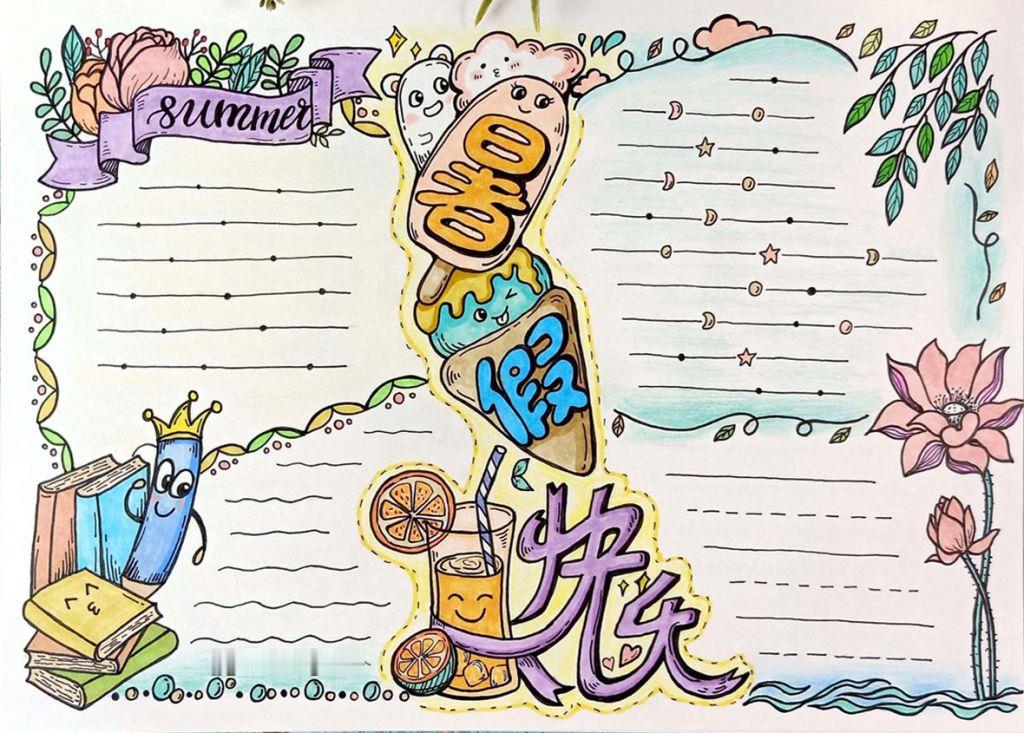 summer
暑
假
快
乐